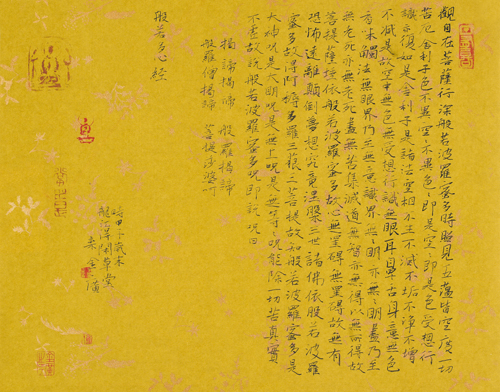 觀自在菩薩行深般若波羅蜜多時照見五蘊皆空度一切
苦厄舍利子色不異空々不異色々即是空々即是色受想行
識亦復如是舍利子是諸法空相不生不滅不垢不淨不增
不減是故空中無色無受想行識無眼耳鼻舌身意無色
香味觸法無眼界乃至無意識界無々明亦無々明盡乃至
無老死亦無老死盡無苦集滅道無智亦無得以無所得故
菩提薩埵依般若波羅蜜多故心無罣礙無罣礙故無有
恐怖遠離顛倒夢想究竟涅槃三世諸佛依般若波羅
蜜多故得阿耨多羅三藐三菩提故知般若波羅蜜多是
大神咒是大明咒是無上咒是無等々咒能除一切苦真實
不虛故說般若波羅蜜多咒即說咒曰
揭諦揭諦 般羅揭諦
般羅僧揭諦 菩提薩婆訶
般若多心經